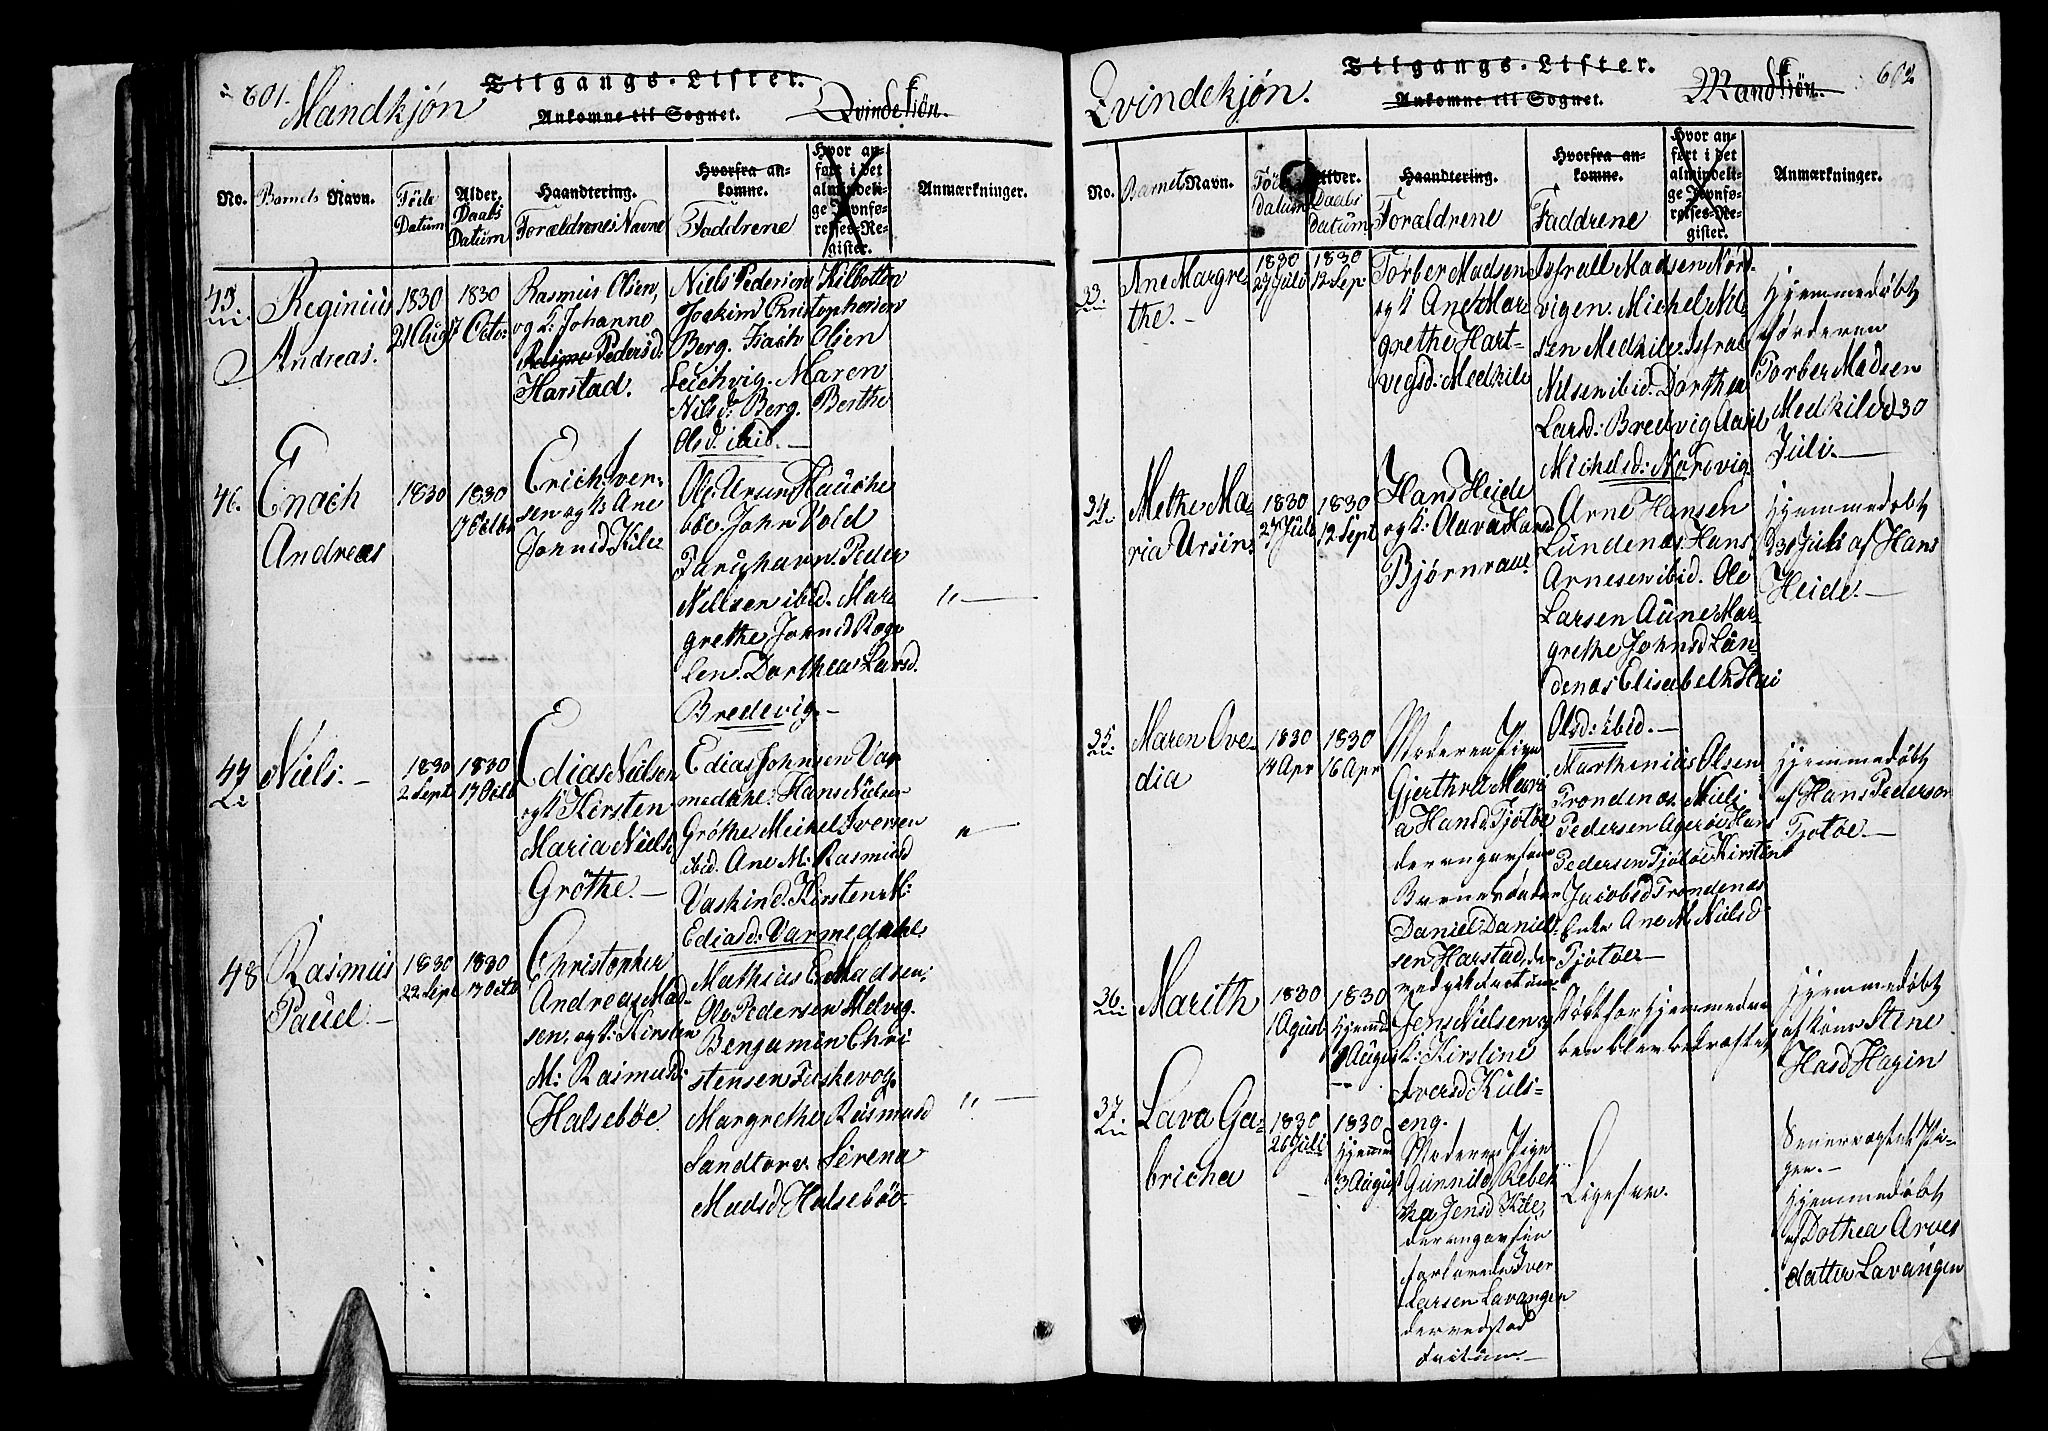 601.
Mandkjön
Tilgangs-Lister.
Ankomne til Sognet.
Qvindekiön.
No.
Barnets Navn.
Föde
Datum
Alder.
Daabs
Datum
Haandtering.
Forældrenes Navne
Hvorfra an-
komne.
Faddrene
Hvor an-
ført i det
almindeli-
ge Jevnfø-
relses-Re-
gister.
Anmærkninger.
45.
Reginius
Andreas.
1830
21 Aug
1830
17 Octo:
Rasmus Olsen,
og k: Johanna
Pedersd:
Harstad.
Niels Pedersen Kilbotten
Joakim Christophersen
Berg. Isach Olsen
Maren
Nilsdr Berg. Berthe
Olsd: ibid.
46.
Enoch
Andreas
1830
1830
17 Octbr
Erich Iver-
sen og k: Ane
Johnsd Kile
Ole Ursin Hausche
böe. John Vold
Peder
Nilsen ibid. Mar
grethe Johnsd Røge
len. Dorthea Larsd.
Bredevig.
"
47
Niels.
1830
2 Sept
1830
17 Octb
Edias Nielsen
og k Kirsten
Maria Niels
Gröthe.
Edias Johnsen Var
medahl. Hans Nielsen
Gröthe Michel Iversen
ibid. Ane M: Rasmusd
Vaskind. Kirsten M:
Ediasd: Varmedahl.
"
48
Rasmus
Paul.
1830
22 Sept
1830
17 Octb
Christopher
Andreas Mad-
sen, og k: Kirsten
M: Rasmusd:
Halseböe
Mathias E Madsen:
Ole Pedersen Melvig.
Benjamin Chri
stensen Fuskevog.
Margrethe Rasmusd
Sandtorv. Serena
Madsd Halseböe.
"
602
Qvindekjön.
Tilgangs-Lister.
Ankomne til Sognet.
Mandkiön.
No.
Barnets Navn.
Föde
datum
Alder.
Daabs
datum
Haandtering.
Forældrene
Hvorfra an-
komne.
Faddrene
Hvor an-
ført i det
almindeli-
ge Jevnfø-
relses-Re-
gister.
Anmærkninger.
33.
Ane Margre
the.
1830
27 Juli
1830
12 Sep
Torber Madsen
og k Ane Mar-
grethe Hart-
vigsd: Medkile
Isfrall Madsen Nord-
vigen. Michel Nil
sen Medkile. Isfrael
Nilsen ibid. Dorthea
Larsd: Bredvig
Michelsd: Nordvig
Hjemmedöbt
Torber Madsen
Medkile d 30
Juli.
34.
Methe Ma-
ria Ursin.
1830
27 Juli
1830
12 Sept
Hans Heide
og k: Olava Hansd
Bjørnraae
Arne Hansen
Lundenes Hans
Arnesen ibid. Ole
Larsen Aune Mar-
grethe Johnsd Lun-
denes Elisabeth
Olsd: ibid.
Hjemmedöbt
d 30 Juli af Hans
Heide.
35.
Maren Ove-
dia
1830
14 Apr
1830
16 Apr
Moderen Pigen
Gjerthru Mari
a Hansd Tjotøe
der angav som
Barnefader
Daniel Daniel-
sen Harstad, der
Marthinius Olsen
Trondenæs Niels
Pedersen Agerøe Hans
Pedersen Tjotøe Kirsten
Jacobsd Trondenæs
Enke Ane M Nielsd:
Tjotøe
Hjemmedöbt
af Hans Pedersen
Tjotøe.
36.
Marith
1830
1 Agust
1830
Hjemmed
8 August
Jens Nielsen og
k: Kirstine
Iversd Kuls-
eng.
Döbt for Hjemmedaa
ben blev bekræftet
Hjemmedöbt
af Kone Stine
Hansd Hagin
37.
Lava Ga-
bricha
1830
26 Juli
1830
Hjemmed
3 August
Moderen Pige
Gunnild Rebek
ka Jensd Kile,
der angav sin
forlovede Iver
Larsen Lavangen
der vedstod
Factum.
Ligesaa.
gen.
Hjemmedöbt
af Dothea Arves
datter Lavangen